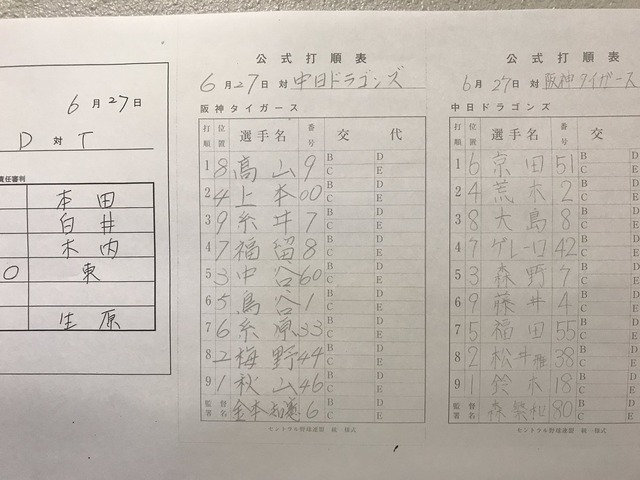 6月27日
D 対 T
責任審判
本田
白井
木内
0 東
生原
公式打順表
6月27日 対 中日ドラゴンズ
阪神タイガース
打順 位置 選手名 番号 交代
1 8 高山 9 B C D E
2 4 上本 00 B C D E
3 9 糸井 7 B C D E
4 7 福留 8 B C D E
5 3 中谷 60 B C D E
6 5 鳥谷 1 B C D E
7 6 糸原 33 B C D E
8 2 梅野 44 B C D E
9 1 秋山 46 B C D E
監督署名 金本知憲 6 B C D E
セントラル野球連盟 統一様式
公式打順表
6月27日 対 阪神タイガース
中日ドラゴンズ
打順 位置 選手名 番号 交
1 6 京田 51 B C D E
2 4 荒木 2 B C D E
3 8 大島 8 B C D E
4 7 ゲレーロ 42 B C D E
5 3 森野 7 B C D E
6 9 藤井 4 B C D E
7 5 福田 55 B C D E
8 2 松井雅 38 B C D E
9 1 鈴木 18 B C D E
監督署名 森繁和 80 B C D E
セントラル野球連盟 統一様式